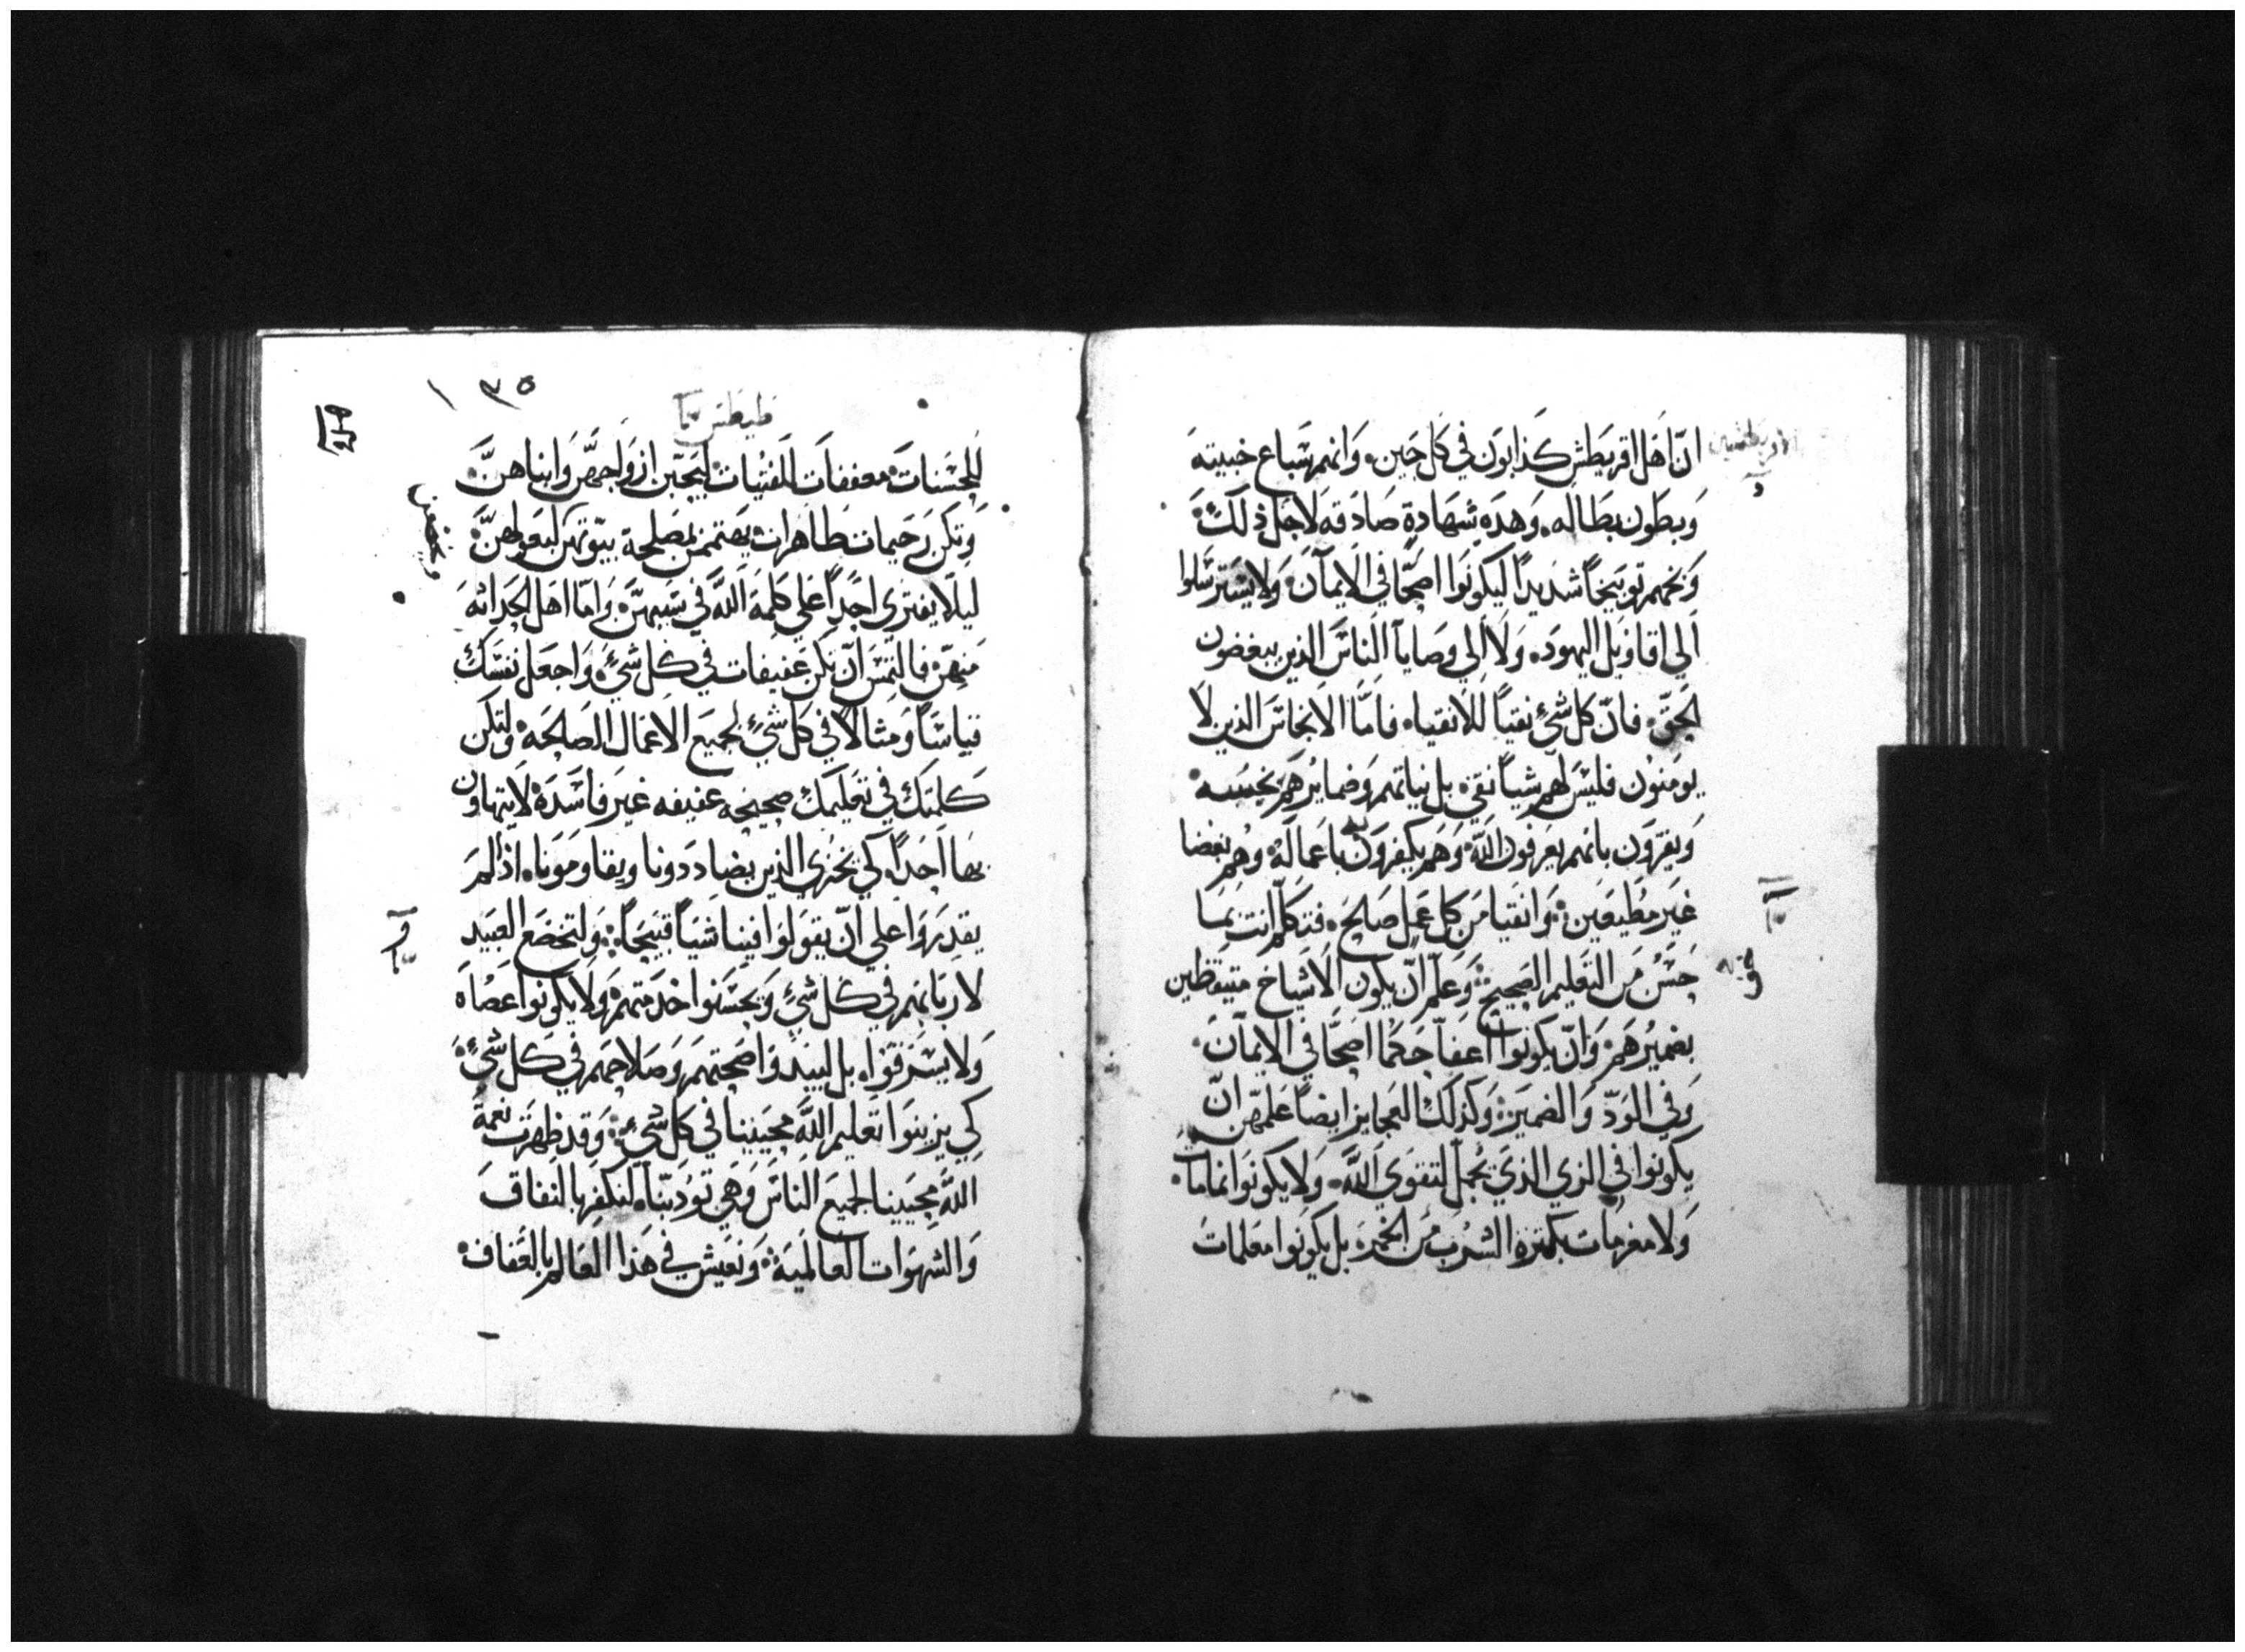 انّ اهل اقريطش كذابون في كل حين. وانهم سباع خبيثه
وبطون بطاله. وهذه شهادة صادقه لاجل ذلك
وبخهم توبيخاً شديداً ليكونوا اصحّا في الايمان ولا يسترسلوا
الي اقاويل اليهود. ولا الي وصايا الناس الذين يبغضون
الحق. فانّ كل شيء نقياً للانقياء. فامّا الانجاس الذين لا
يومنون فليس لهم شياً نقي. بل نياتهم وضمايرهم نجسه
ويقرون بانهم يعرفون الله وهم يكفرون به باعماله وهم بغضا
غير مطيعين: وانقيا من كل عمل صالح. فتكلم انت بما
حسن من التعليم الصحيح: وعلم انّ يكون الاشياخ متيقظين
بضميرهم. وانّ يكونوا اعفا حكما اصحّا في الايمان.
وفي الودّ والضمير: وكذلك العجايز ايضاً علمهن انّ
يكونوا في الزي الذي يجمل لتقوي الله. ولا يكونوا نمامات.
ولا مغرمات بكثرة الشرب من الخمر. بل يكونوا معلمات
طيطس
١٣٥
للحسنات معففات للفتيات ليحبّبن ازواجهنّ وابناهنّ
وتكن رحيمات طاهرات يهتممن بمصلحة بيوتهن لبعولهنّ
ويخضعن
ليلا يفتري احداً علي كلمة الله في سببهنّ. وامّا اهل الحداثه
منهنّ فالتمس انّ تكن عفيفات في كل شيء. واجعل نفسك
قياساً ومثالاً في كل شيء لجميع الاعمال الصالحه. ولتكن
كلمتك في تعليمك صحيحه عفيفه غير فاسده لا يتهاون
بها احداً. كي يخزي الذين يضاددونا ويقاومونا. اذا لم
يقدروا علي انّ يقولوا فينا شياً قبيحاً: ولتخضع العبيد
لاربابهم في كل شيء ويحسنوا خدمتهم ولا يكونوا عصاه
ولا يسرقوا. بل لتبيد واصحتهم وصلاحهم في كل شيء:
كي يزينوا تعليم الله محيينا في كل شيء: وقد ظهرت نعمة
الله محيينا لجميع الناس وهي تودبنا. لنكفر بالنفاق
والشهوات العالمية: ونعيش في هذا العالم بالعفاف.